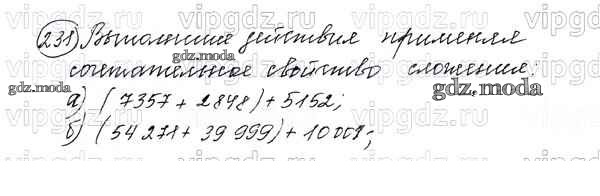 231) Выполните действия применяя
сочетательное свойство сложения:
а) (7357 + 2848) + 5152;
б) (54 271 + 39 999) + 10 001;
gdz.moda
gdz.moda
gdz.moda
vipgdz.ru